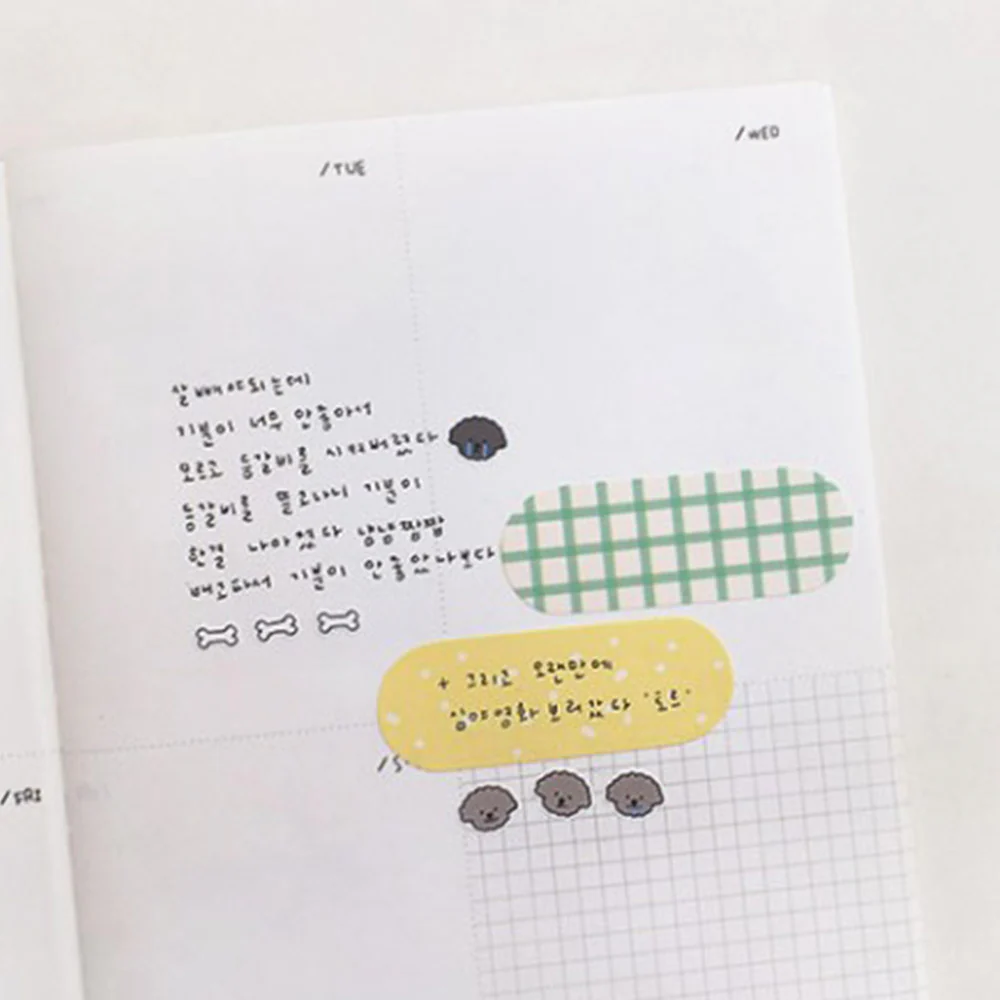 /TUE
/WED
살 빼야되는데
기분이 너무 안좋아서
모르고 등갈비를 시켜버렸다
등갈비를 뜯고나니 기분이
한결 나아졌다 냠냠짭짭
배고파서 기분이 안좋았나보다
+ 그리고 오랜만에
심야영화 보러갔다
/S
/FRI